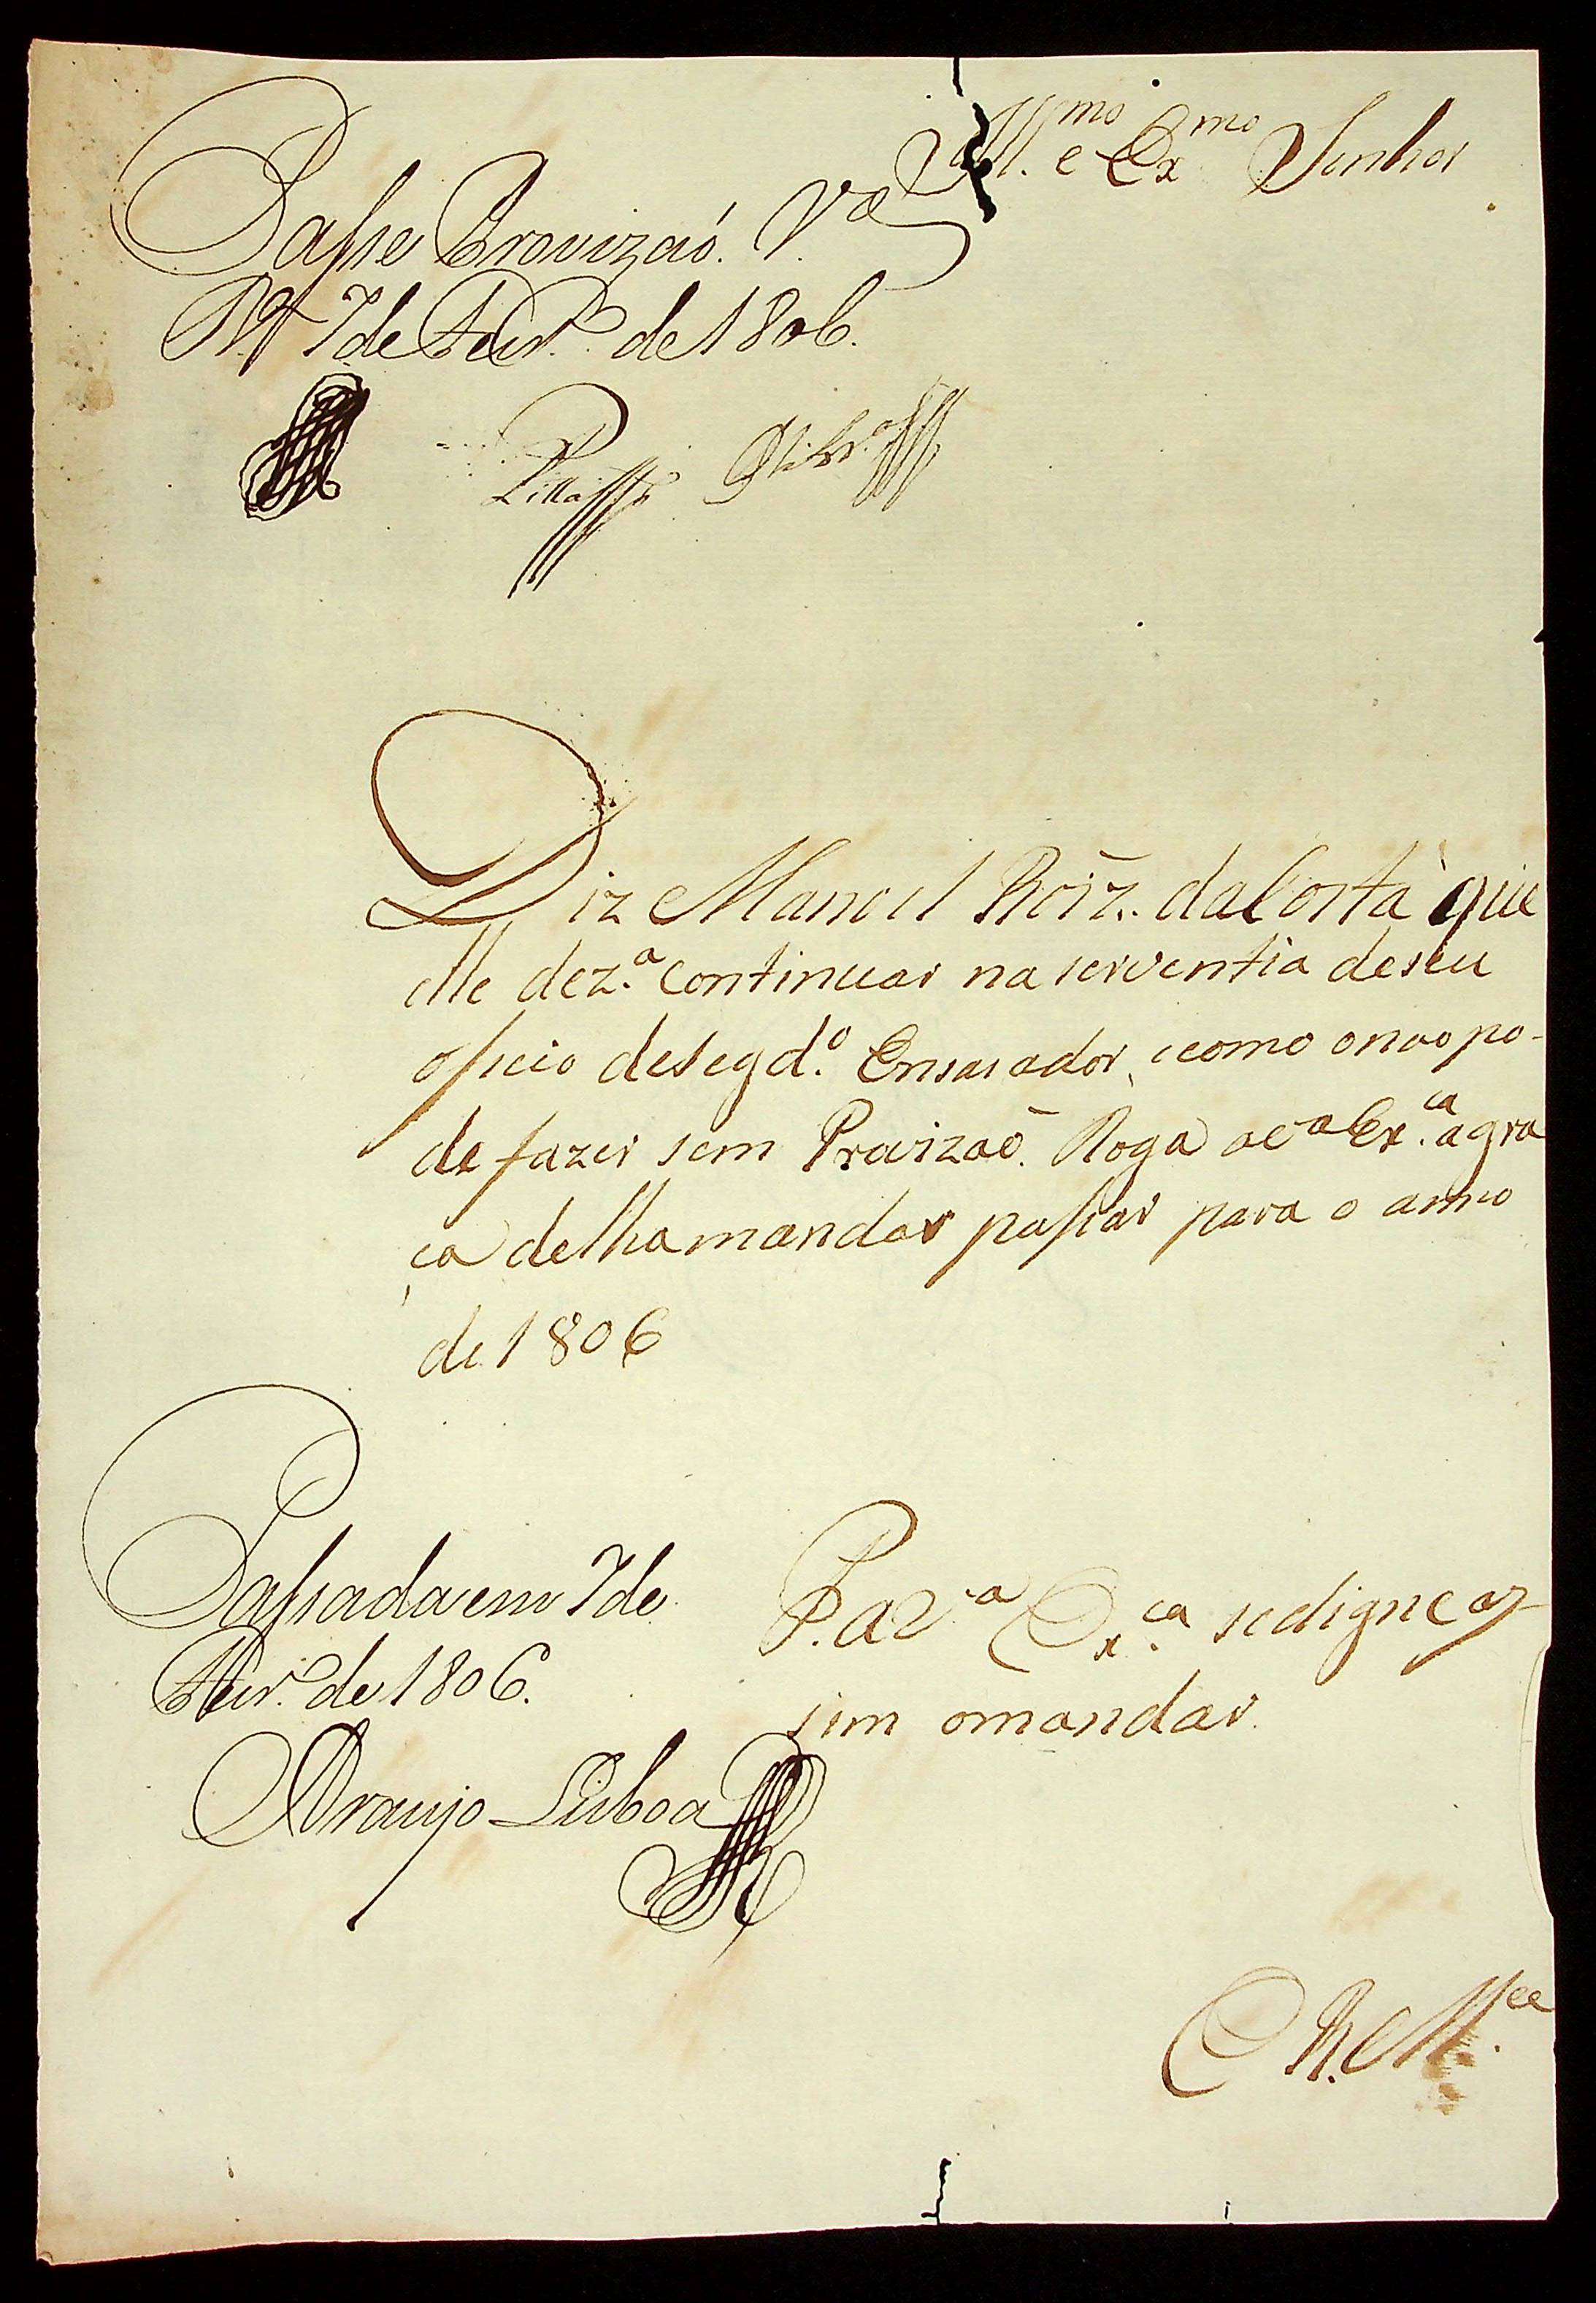 Ill.mo e Ex.mo Senhor
Passe Provizaó. V.a
R.a 7 de Fevr.o de 1806.
Diz Manoel Roiz. da Costa que
elle dez.a continuar na serventia de seu
oficio de segd.o Ensaiador, e como o nao po-
de fazer sem Provizaõ. Roga a V.a Ex.ca a gra
ça de lha mandar passar para o anno
de 1806
P. a V.a Ex.ca se digne as-
sim o mandar.
Passada em 7 de
Fevr.o de 1806.
Araujo Lisboa
E R. M.ce